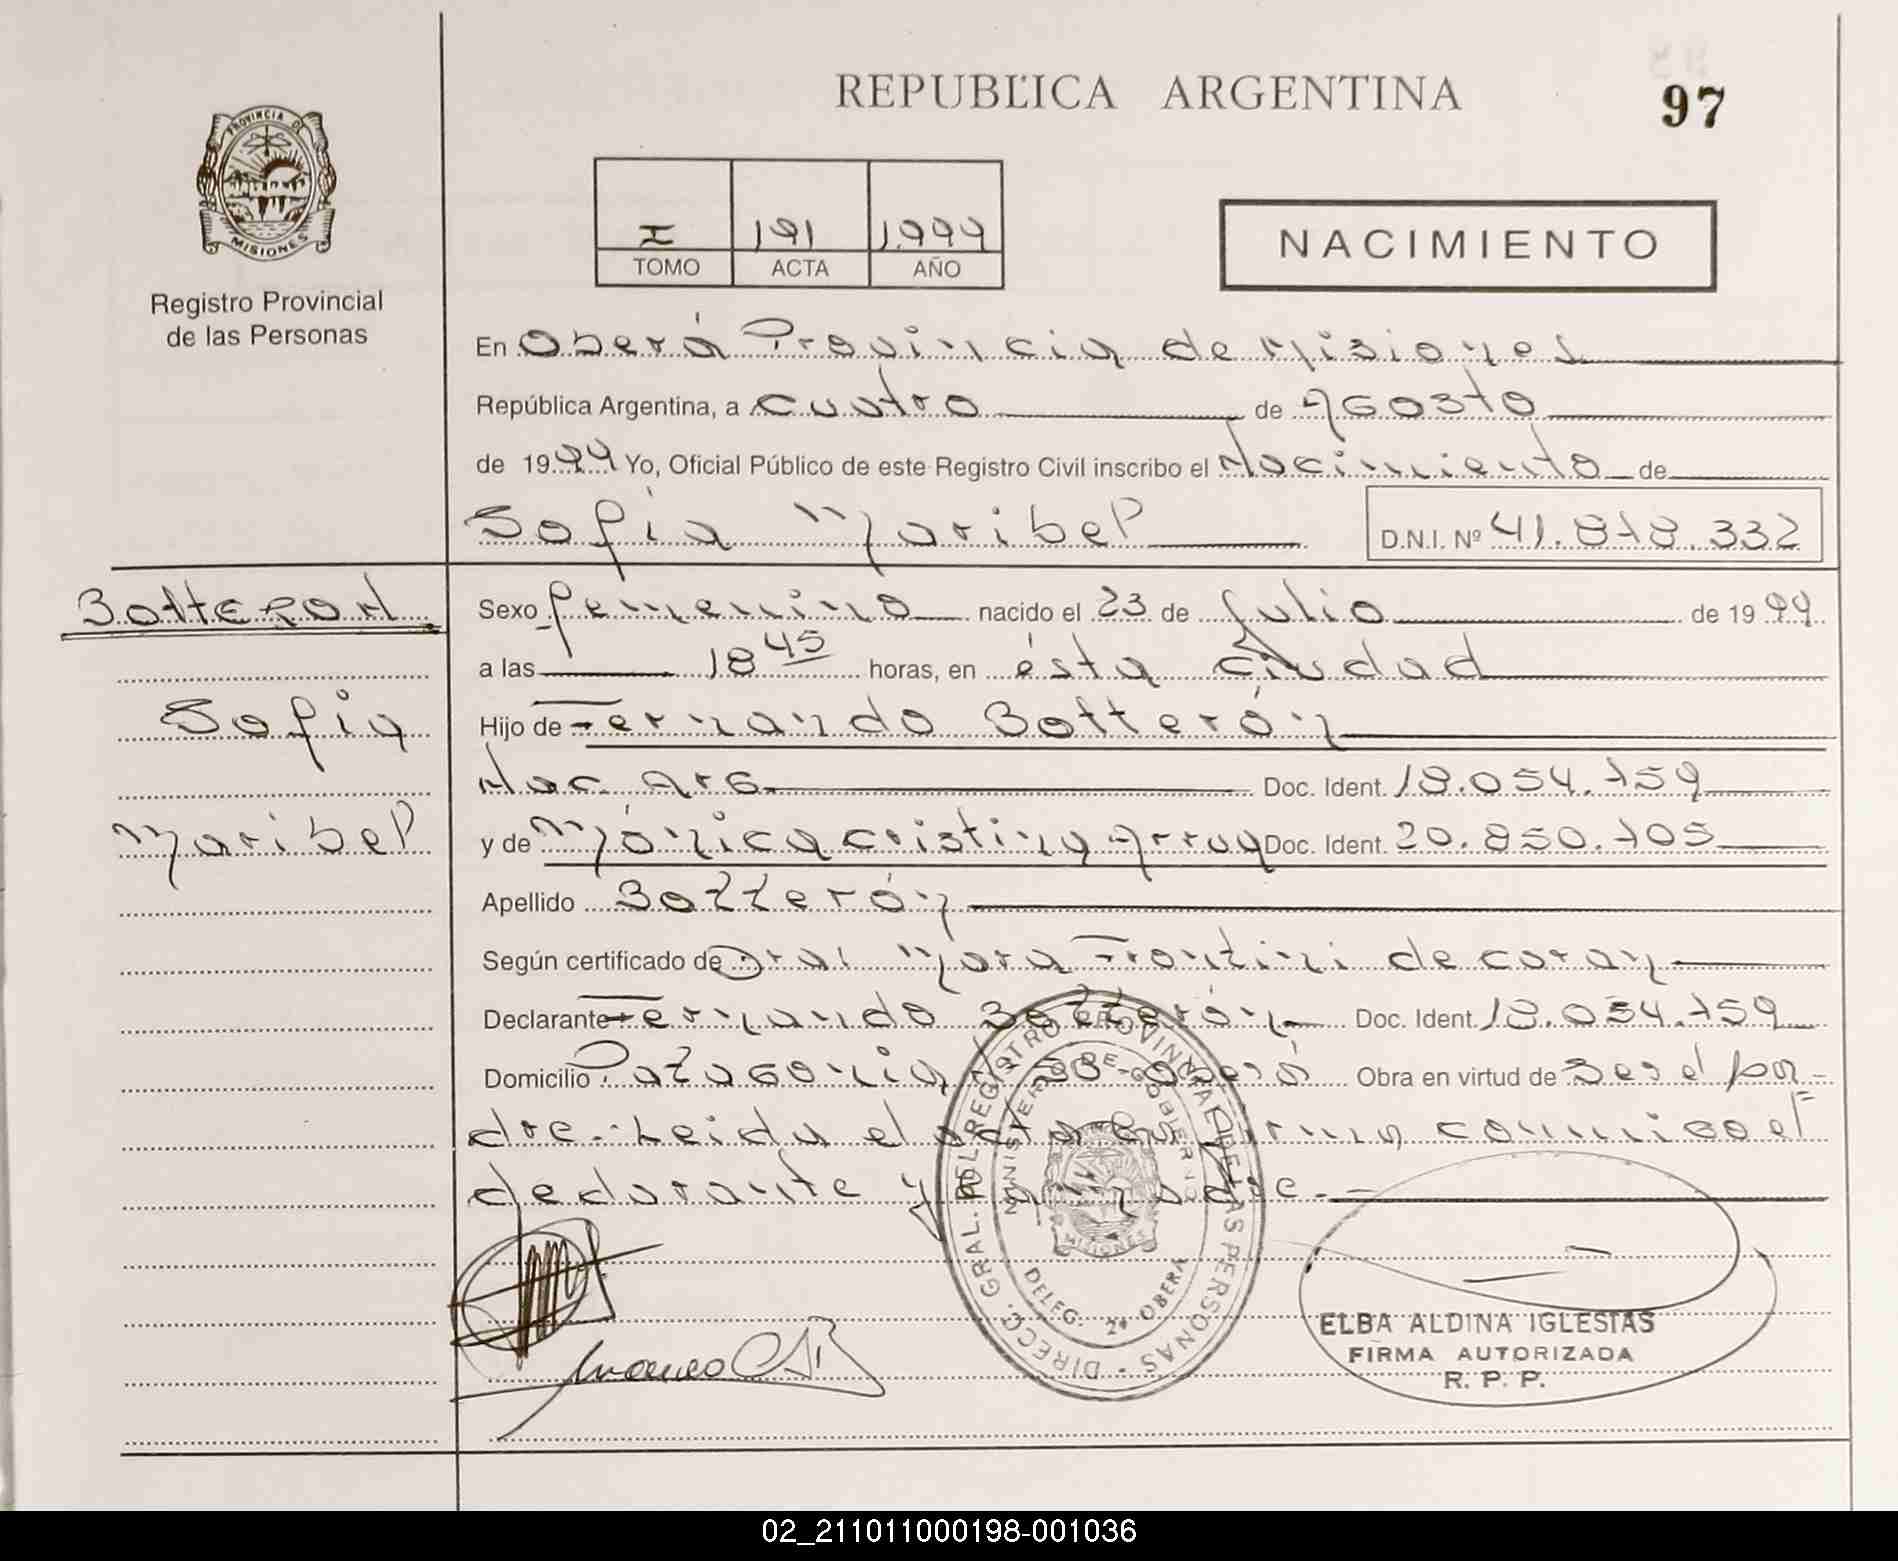 REPUBLICA ARGENTINA
97
PROVINCIA DE
MISIONES
Registro Provincial
de las Personas
I 191 1.999
TOMO ACTA AÑO
NACIMIENTO
En Oberá Provincia de Misiones
República Argentina, a cuatro de Agosto
de 1999 Yo, Oficial Público de este Registro Civil inscribo el Nacimiento de
Sofia Maribel D.N.I. Nº 41.878.332
Botteron
Sexo femenino nacido el 23 de Julio de 1999
a las 18 45 horas, en ésta ciudad
Sofia
Hijo de Fernando Botterón
Nac. Arg. Doc. Ident. 18.054.759
Maribel
y de Mónica Cristina Doc. Ident. 20.850.705
Apellido Botterón
Según certificado de Dra. Mara de
Declarante Fernando Botterón Doc. Ident. 18.054.759
Domicilio Patagonia Oberá Obra en virtud de Ser el pa-
dre.- Leida el acta la firma conmigo el
declarante y
DIRECC. GRAL. DEL REGISTRO PROVINCIAL DE LAS PERSONAS
MINISTERIO DE GOBIERNO
MISIONES
DELEG. 2ª OBERA
ELBA ALDINA IGLESIAS
FIRMA AUTORIZADA
R. P. P.
02_211011000198-001036